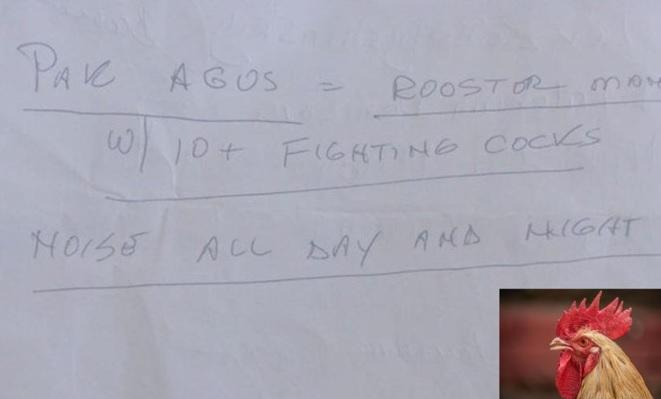 PAK AGUS = ROOSTOR MAN
W/ 10+ FIGHTING COCKS
NOISE ALL DAY AND NIGHT